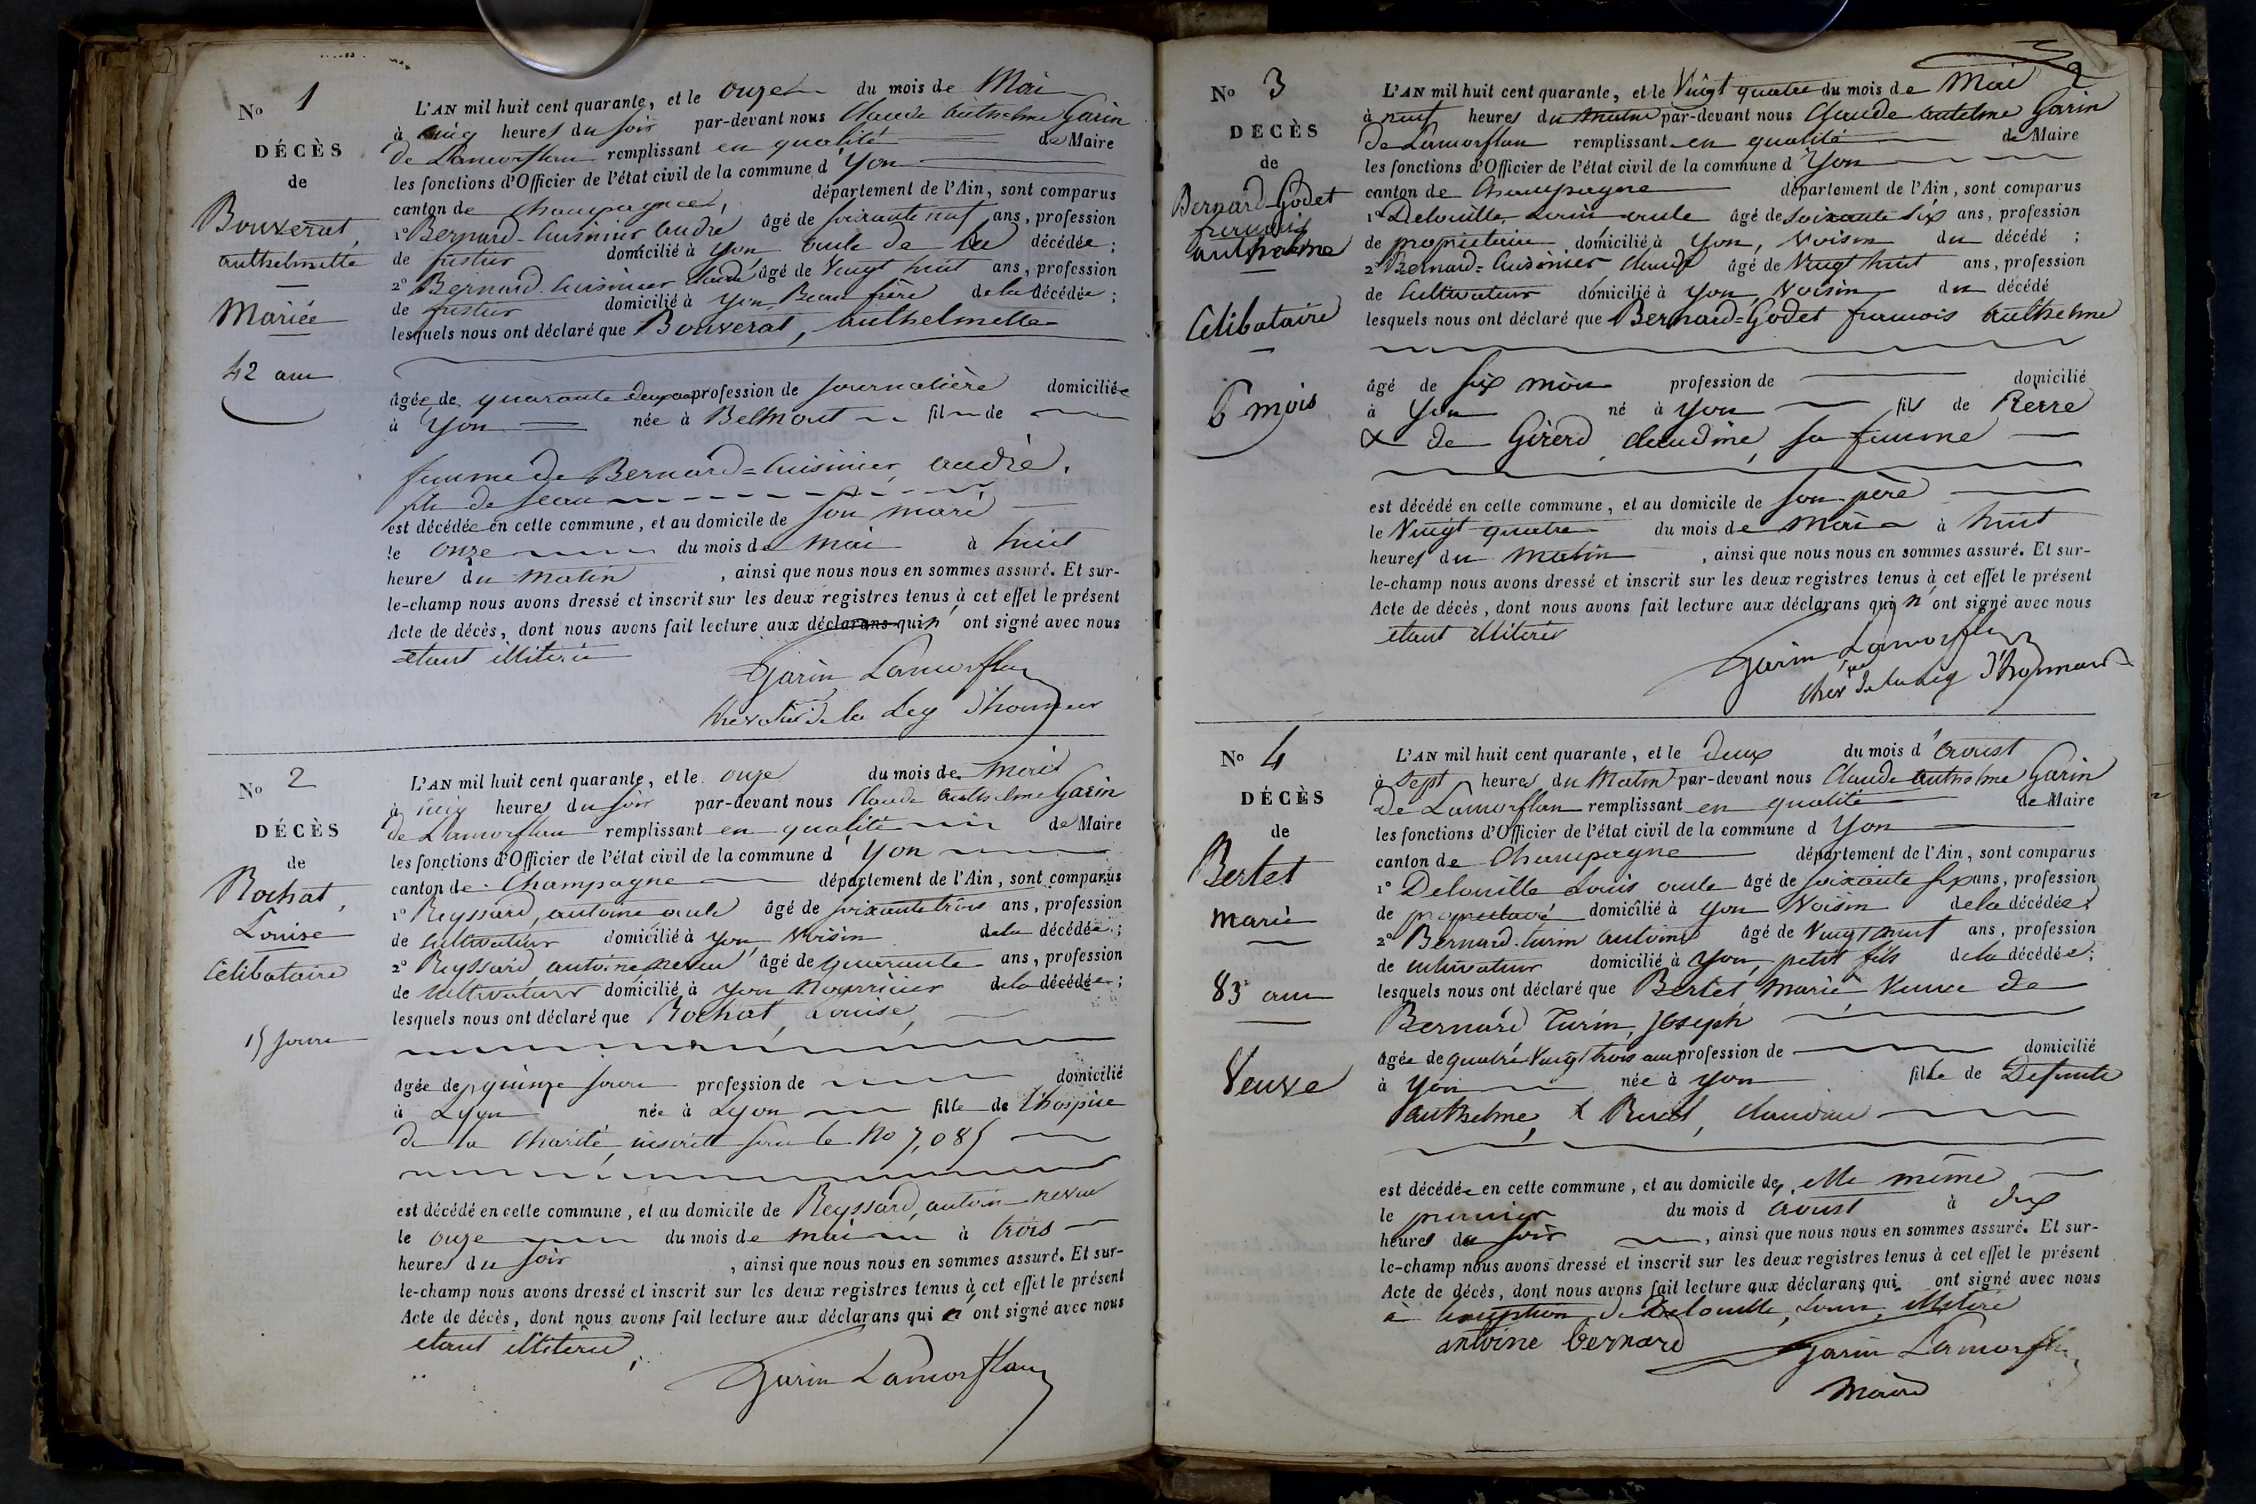 No 1
DÉCÈS
de
Bouverat,
anthelmette
Mariée
42 ans
L'AN mil huit cent quarante, et le onze du mois de Mai
à cinq heures du soir par-devant nous Claude anthelme Garin
de Lamorflan remplissant en qualité de Maire
les fonctions d'Officier de l'état civil de la commune d'yon
canton de Champagne, département de l'Ain, sont comparus
1° Bernard-Cuisinier andré âgé de soixante neuf ans, profession
de justier domicilié à yon, oncle de la décédée;
2° Bernard-Cuisinier Claude âgé de Vingt huit ans, profession
de justier domicilié à yon, Beau frère de la décédée;
lesquels nous ont déclaré que Bouverat, anthelmette
âgée de quarante deux ans profession de Journalière domiciliée
à yon née à Belmont fil de
femme de Bernard=Cuisinier, andré.
fille de Jean
est décédée en cette commune, et au domicile de son mari
le onze du mois de Mai à huit
heures du Matin, ainsi que nous nous en sommes assuré. Et sur-
le-champ nous avons dressé et inscrit sur les deux registres tenus à cet effet le présent
Acte de décès, dont nous avons fait lecture aux déclarans qui n'ont signé avec nous
étant illitérés
Garin Lamorflan
de la Leg d'honneur
No 2
DÉCÈS
de
Rochat,
Louise
Célibataire
15 jours
L'AN mil huit cent quarante, et le onze du mois de Mai
à cinq heures du soir par-devant nous Claude anthelme Garin
de Lamorflan remplissant en qualité de Maire
les fonctions d'Officier de l'état civil de la commune d'yon
canton de Champagne département de l'Ain, sont comparus
1° Reyssard, antoine oncle âgé de soixante trois ans, profession
de Cultivateur domicilié à yon, Voisin de la décédée;
2° Reyssard antoine neveu âgé de quarante ans, profession
de Cultivateur domicilié à yon Nourricier de la décédée;
lesquels nous ont déclaré que Rochat, Louise,
âgée de quinze jours profession de domicilié
à Lyon née à Lyon fille de l'hospice
de la Charité, inscrite sous le No 7,085
est décédé en cette commune, et au domicile de Reyssard, antoine neveu
le onze du mois de mai à trois
heures du soir, ainsi que nous nous en sommes assuré. Et sur-
le-champ nous avons dressé et inscrit sur les deux registres tenus à cet effet le présent
Acte de décès, dont nous avons fait lecture aux déclarans qui n'ont signé avec nous
étant illitérés,
Garin Lamorflan
No 3
DÉCÈS
de
Bernard-Godet
francois
anthelme
Célibataire
6 mois
L'AN mil huit cent quarante, et le Vingt quatre du mois de Mai
à neuf heures du matin par-devant nous Claude antelme Garin
de Lamorflan remplissant en qualité de Maire
les fonctions d'Officier de l'état civil de la commune d'yon
canton de Champagne département de l'Ain, sont comparus
1° Delouille Louis oncle âgé de soixante six ans, profession
de propriétaire domicilié à yon, Voisin du décédé;
2° Bernard=Cuisinier, Claude âgé de Vingt huit ans, profession
de Cultivateur domicilié à yon, Voisin du décédé
lesquels nous ont déclaré que Bernard=Godet francois anthelme
âgé de six mois profession de domicilié
à yon né à yon fils de Pierre
& de Girerd, Claudine, sa femme
est décédé en cette commune, et au domicile de son père
le Vingt quatre du mois de Mai à huit
heures du Matin, ainsi que nous nous en sommes assuré. Et sur-
le-champ nous avons dressé et inscrit sur les deux registres tenus à cet effet le présent
Acte de décès, dont nous avons fait lecture aux déclarans qui n'ont signé avec nous
étant illitérés
Garin Lamorflan
cher de la Leg d'honneur
No 4
DÉCÈS
de
Bertet
Marie
83 ans
Veuve
L'AN mil huit cent quarante, et le deux du mois d'aoust
à sept heures du Matin par-devant nous Claude anthelme Garin
de Lamorflan remplissant en qualité de Maire
les fonctions d'Officier de l'état civil de la commune d yon
canton de Champagne département de l'Ain, sont comparus
1° Delouille Louis oncle âgé de soixante six ans, profession
de propriétaire domicilié à yon Voisin de la décédée;
2° Bernard-turin antoine âgé de Vingt neuf ans, profession
de cultivateur domicilié à yon, petit fils de la décédée;
lesquels nous ont déclaré que Bertet, Marie, Veuve de
Bernard Turin, Joseph
âgée de quatre Vingt trois ans profession de domicilié
à yon née à yon fille de Defunts
anthelme, &
est décédée en cette commune, et au domicile de elle même
le premier du mois d aoust à dix
heures du soir, ainsi que nous nous en sommes assuré. Et sur-
le-champ nous avons dressé et inscrit sur les deux registres tenus à cet effet le présent
Acte de décès, dont nous avons fait lecture aux déclarans qui ont signé avec nous
à l'exception de Delouille, Louis, illitéré
antoine bernard
Garin Lamorflan
Maire